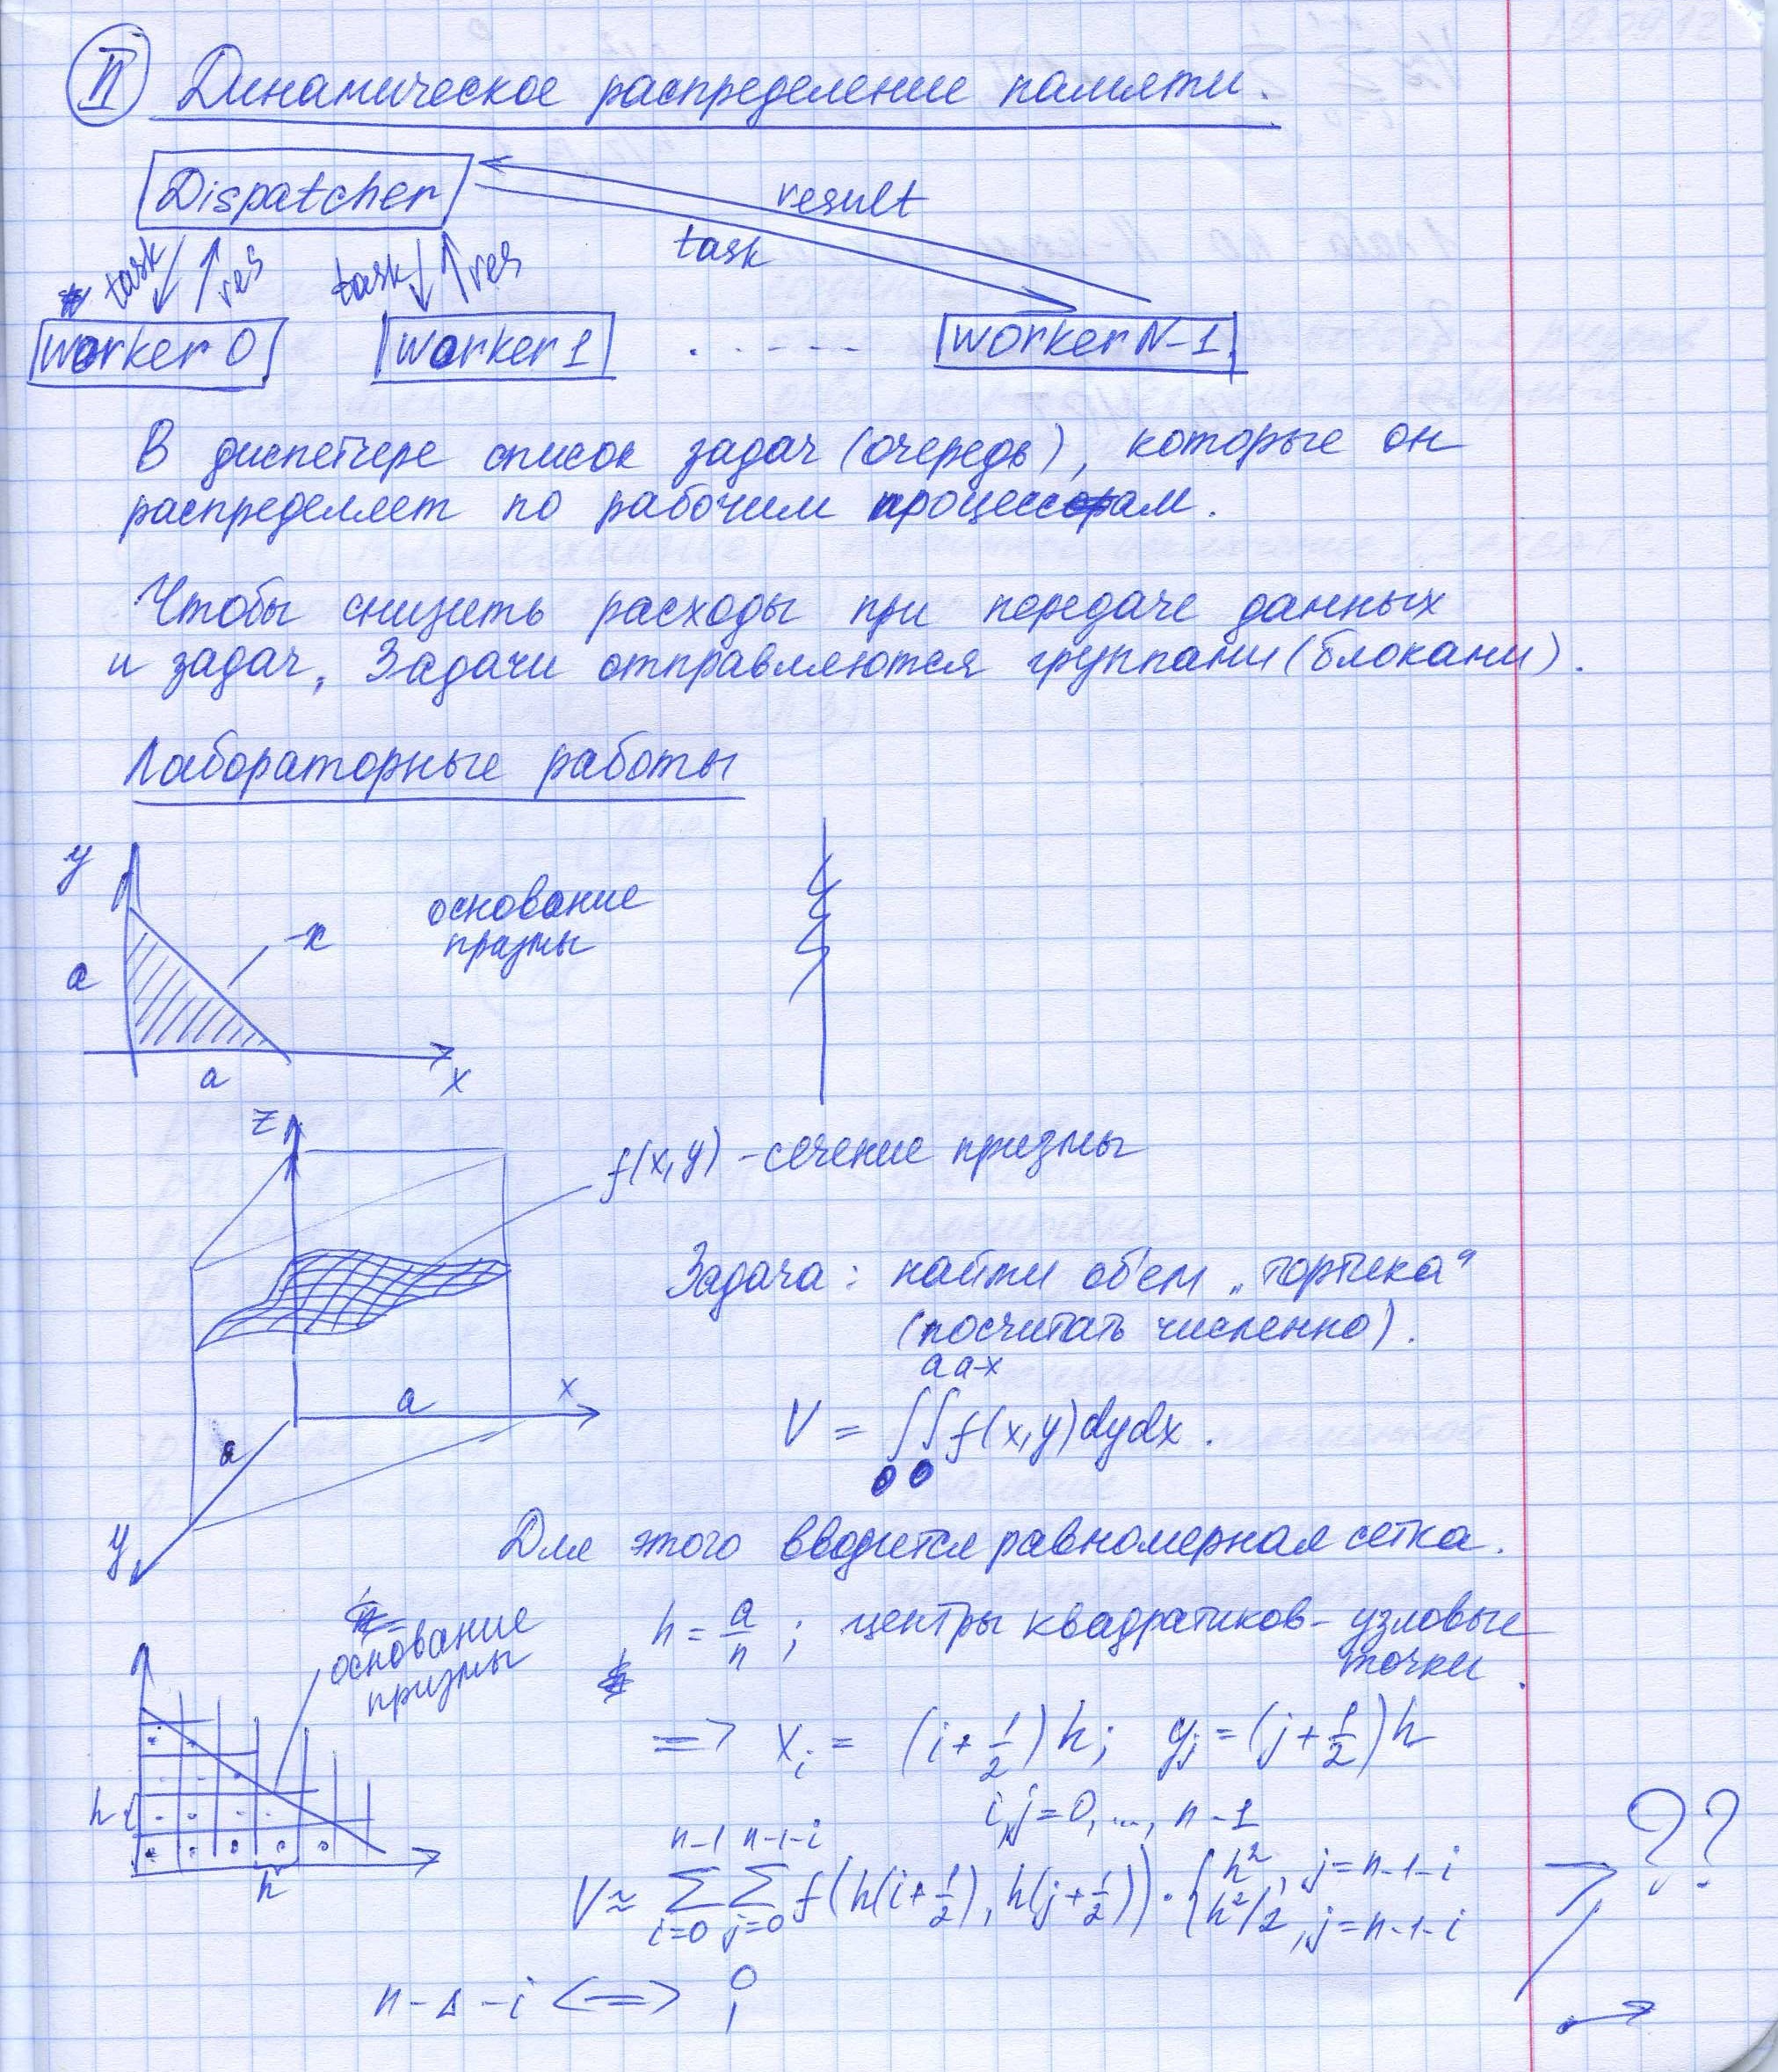 II Динамическое распределение памяти.
Dispatcher
result
task
task res task res
worker 0 worker 1 . - - - - worker N-1
В диспетчере список задач (очередь), которые он
распределяет по рабочим процессам.
Чтобы снизить расходы при передаче данных
и задач, Задачи отправляются группами (блоками).
Лабораторные работы
y
-x
основание
призмы
a
a
x
z
f(x,y) - сечение призмы
Задача: найти объем „тортика“
(посчитать численно).
a a-x
V = ∫∫ f(x,y)dydx.
0 0
a
x
a
y
Для этого вводится равномерная сетка.
h = a/n ; центры квадратиков - узловые
точки.
основание
призмы
=> x_i = (i + 1/2)h; y_j = (j + 1/2)h
i,j = 0, ..., n-1
h
h
??
n-1 n-1-i
V ≈ ∑ ∑ f(h(i+1/2), h(j+1/2)) · { h², j=n-1-i
i=0 j=0 h²/2, j=n-1-i
n-1-i <=> 0
1